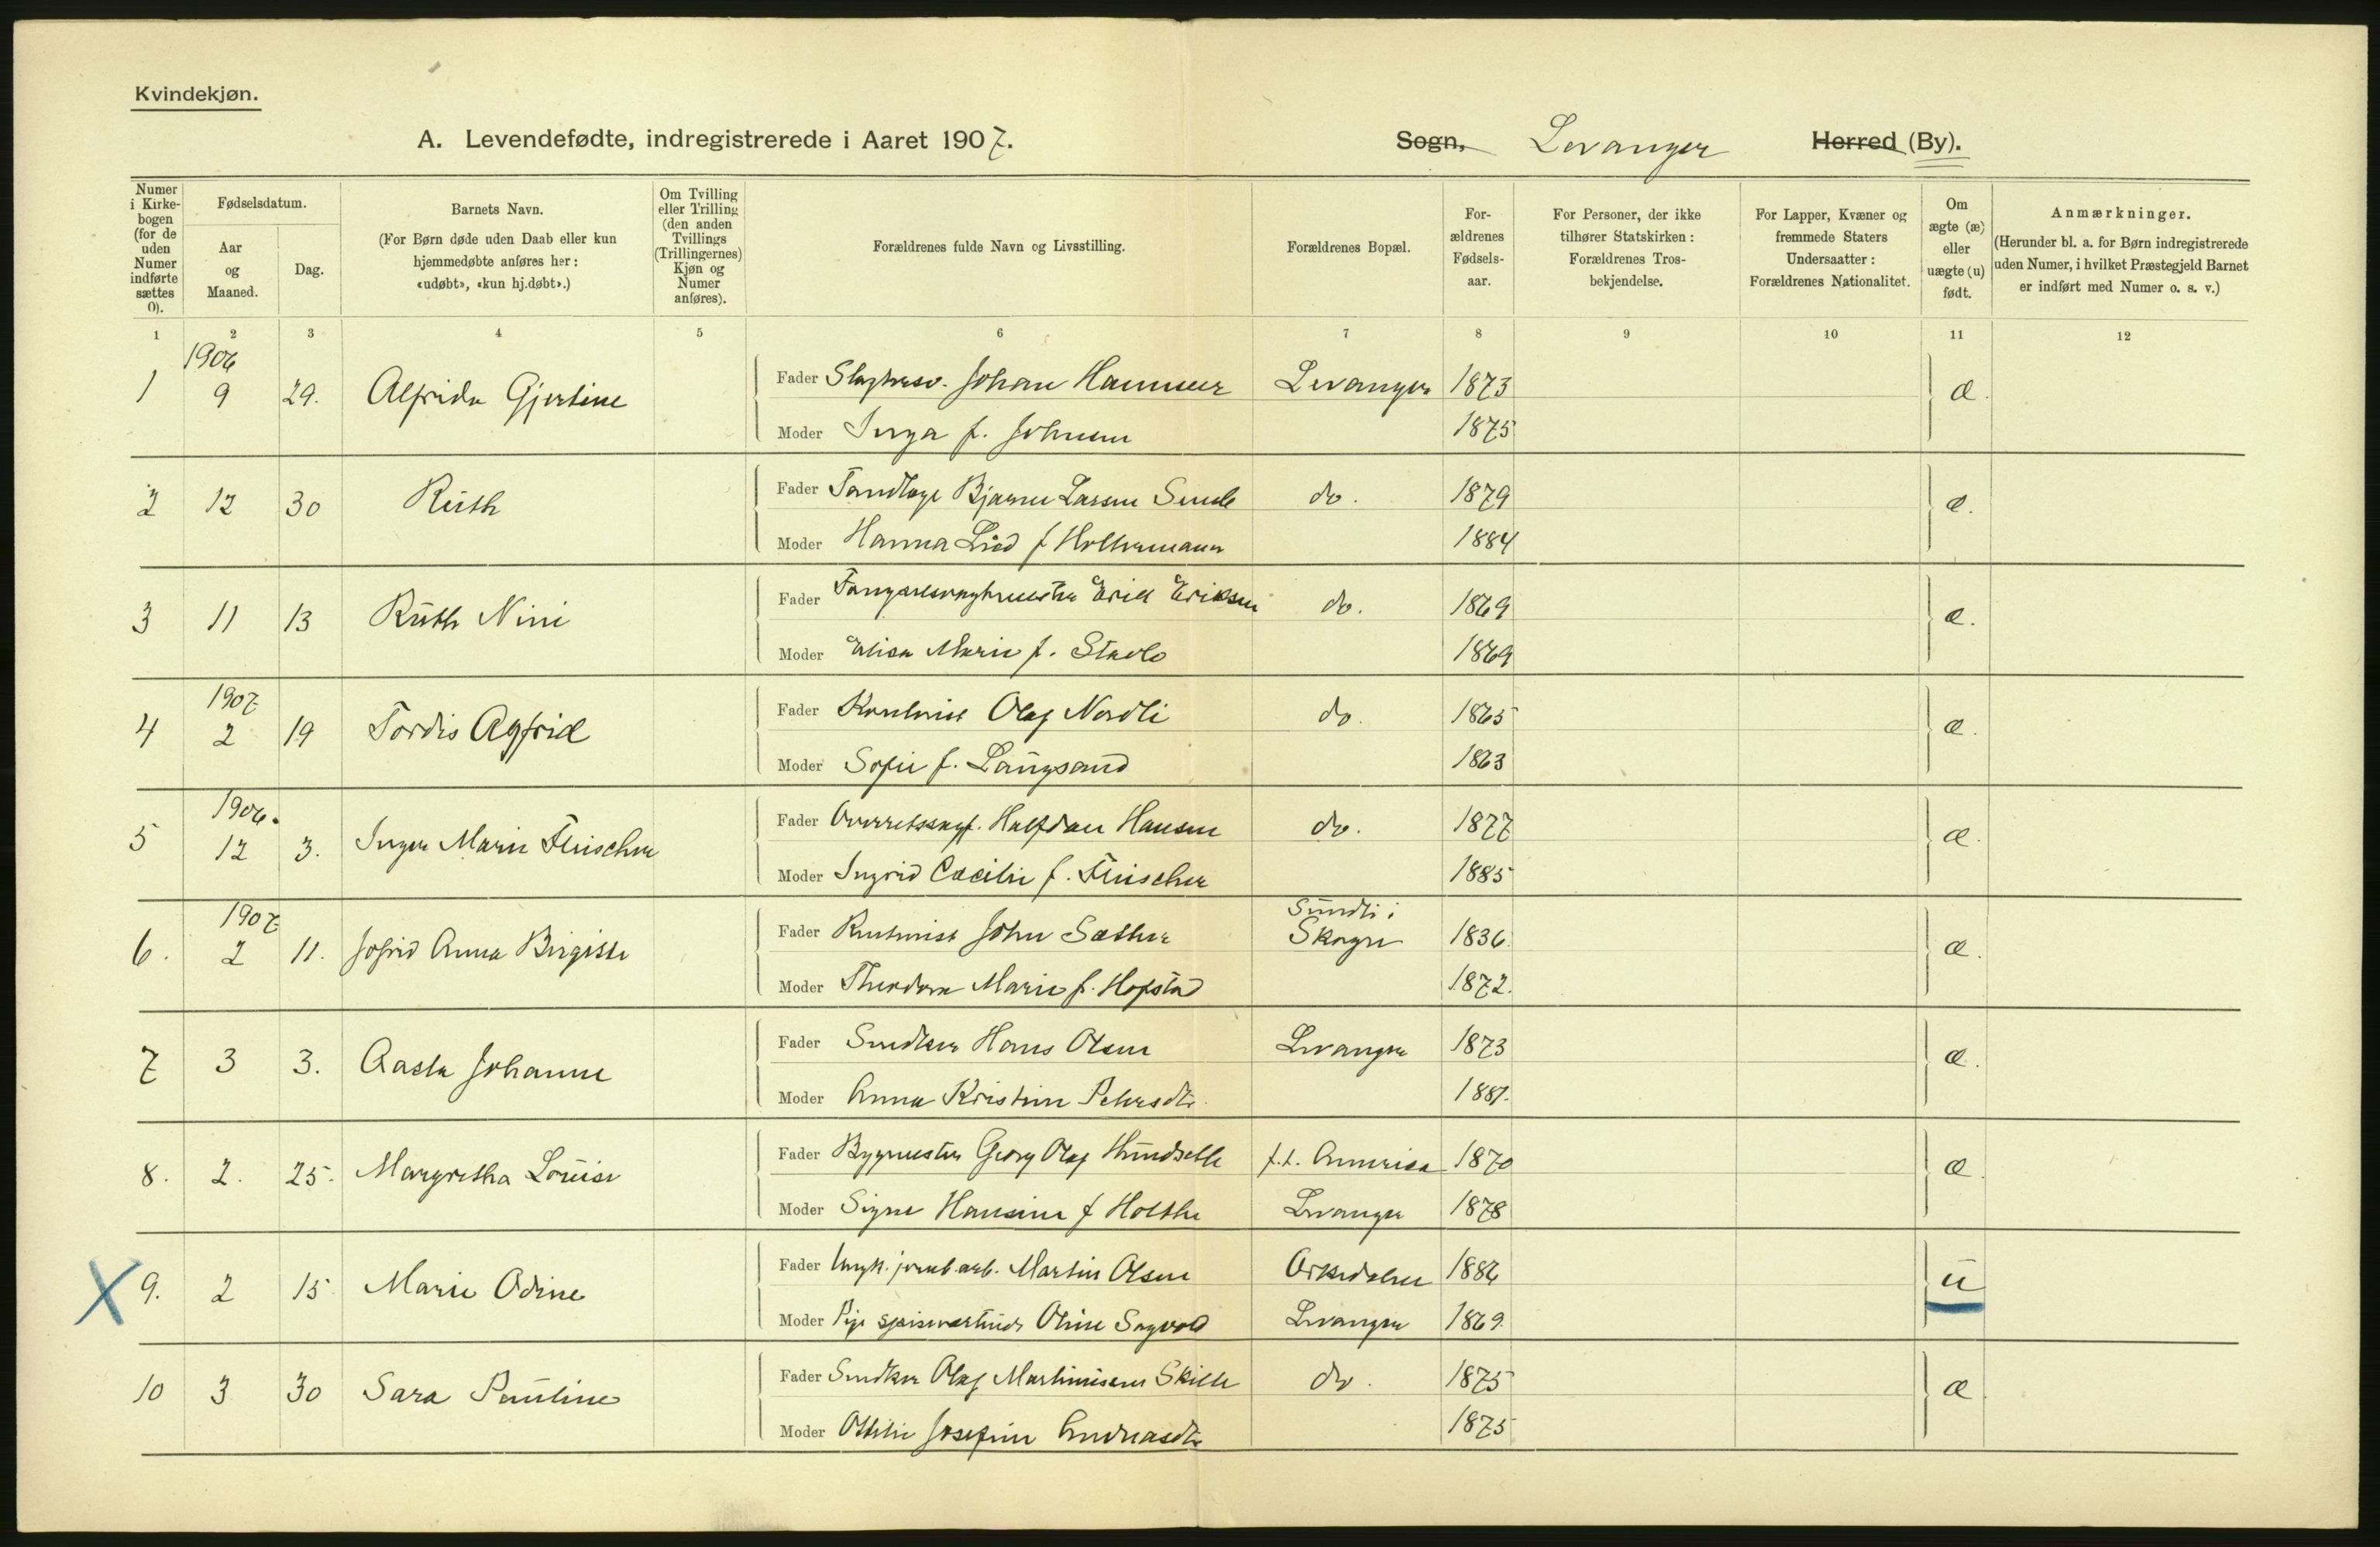 Kvindekjøn.
A. Levendefødte, indregistrerede i Aaret 1907. Sogn, Levanger Herred (By).
Numer i Kirkebogen (for de uden Numer indførte sættes 0).
Fødselsdatum.
Aar og Maaned.
Dag.
Barnets Navn.
(For Børn døde uden Daab eller kun hjemmedøbte anføres her: «udøbt», «kun hj.døbt».)
Om Tvilling eller Trilling (den anden Tvillings (Trillingernes) Kjøn og Numer anføres).
Forældrenes fulde Navn og Livsstilling.
Forældrenes Bopæl.
Forældrenes Fødselsaar.
For Personer, der ikke tilhører Statskirken: Forældrenes Trosbekjendelse.
For Lapper, Kvæner og fremmede Staters Undersaatter: Forældrenes Nationalitet.
Om ægte (æ) eller uægte (u) født.
Anmærkninger.
(Herunder bl. a. for Børn indregistrerede uden Numer, i hvilket Præstegjeld Barnet er indført med Numer o. s. v.)
1 2 3 4 5 6 7 8 9 10 11 12
1906
1 9 29. Alfrida Gjertine Fader Johan Hammer Levanger 1873 æ.
Moder Inga f. Johnsen 1875
2 12 30 Ruth Fader Tandlæge Bjarne Larsen Sende do. 1879 æ.
Moder Hanna Lied f Holtermann 1884
3 11 13 Ruth Nini Fader Erik Eriksen do. 1869 æ.
Moder Elisa Marie f. Stavlo 1869
1907
4 2 19 Tordis Agfrid Fader Olaf Nordli do. 1865 æ.
Moder Sofie f. Langsand 1863
1906.
5 12 3. Inger Marie Fleischer Fader Overretssagf. Halfdan Hansen do. 1877 æ.
Moder Ingrid Cæcilie f. Fleischer 1885
1907
6. 2 11. Jofrid Anna Birgitte Fader John Sæther Sundli i Skogn 1836 æ.
Moder Theodora Marie f. Hofstad 1872.
7 3 3. Aasta Johanne Fader Snedker Hans Olsen Levanger 1873 æ.
Moder Anna Kristine Petersdtr. 1881.
8. 2. 25. Margretha Louise Fader Bygmester Georg Olaf Hundseth f.t. Amerika 1870 æ.
Moder Signe Hansine f Holthe Levanger 1878
X 9. 2 15 Marie Odine Fader Ungk. jernb.arb. Martin Olsen Orkedalen 1886 u
Moder Pige Oline Sagvold Levanger 1869.
10 3 30 Sara Pauline Fader Snedker Olaf Martiniusen do. 1875 æ.
Moder Ottilie Josefine Andreasdtr 1875